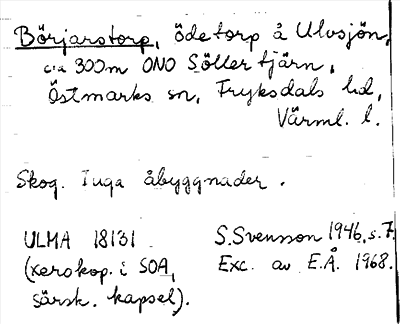 Börjarstorp, ödetorp å Ulvsjön,
c:a 300m ONO Söllertjärn,
Östmarks sn, Fryksdals hd,
Värml. l.
Skog. Inga åbyggnader.
ULMA 18131 S.Svensson 1946, s.7.
(xerokop. i SOA, Exc. av E.Å. 1968.
särsk. kapsel).